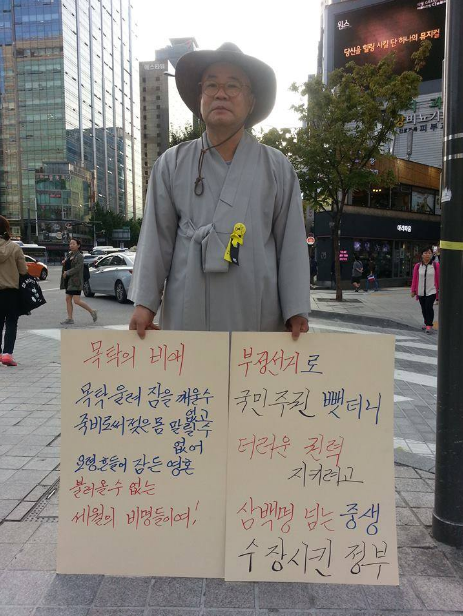 원스
당신을 힐링 시킬 단 하나의 뮤지컬
비뇨기
피부
목탁의 비애
목탁 울려 잠을 깨울수
없고
죽비로써 젖은 몸 말릴수
없어
요령흔들어 잠든 영혼
불러올수 없는
세월의 비명들이여!
부정선거로
국민주권 뺏더니
더러운 권력
지키려고
삼백명 넘는 중생
수장시킨 정부